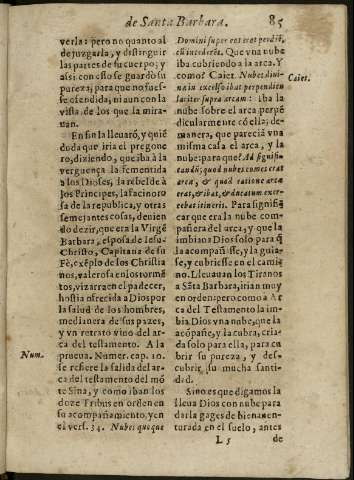 de Santa Barbara. 85
verla: pero no quanto al
dejuzgarla, y distinguir
las partes de su cuerpo; y
assi con esto se guardò su
pureza, para que no fues-
se ofendida, ni aun con la
vista de los que la mira-
uan.
En fin la lleuarõ, y quiẽ
duda que iria el pregone
ro, diziendo, que iba à la
verguença la fementida
a los Dioses, la rebelde à
los Principes, la facinoro
sa de la republica, y otras
semejantes cosas, deuien
do dezir, que era la Virgẽ
Barbara, esposa de Iesu-
Christo, Capitana de su
Fè, exẽplo de los Christia
nos, valerosa en los tormẽ
tos, vizarra en el padecer,
hostia ofrecida a Dios por
la salud de los hombres,
medianera de sus pazes,
y vn retrato viuo del ar-
ca del testamento. A la
Num.
prueua. Numer. cap. 10.
se refiere la salida del ar-
ca del testamento del mõ
te Sina, y como iban los
doze Tribus en orden en
su acompañamiento, y en
el vers. 34. Nubes quoque
Domini super eos erat per diẽ,
cũ incederẽt. Que vna nube
iba cubriendo a la arca. Y
Caiet.
como? Caiet. Nubes diui-
na in excelso ibat perpendicu
lariter supra arcam: iba la
nube sobre el arca perpẽ
dicularmente cõ ella; de-
manera, que parecia vna
misma casa el arca, y la
nube: para que? Ad signifi-
candũ, quod nubes comes erat
arca, & quod ratione arca
erat, & ibat, & ducatum exer-
cebat itineris. Para significa
car que era la nube com-
pañera del arca, y que la
imbiaua Dios solo para q̃
la acompañasse, y la guia-
sse, y cubriesse en el cami
no. Lleuauan los Tiranos
a Sãta Barbara, irian muy
en orden: pero como a Ar
ca del Testamento la im-
bia Dios vna nube, que la
acõpañe, y la cubra, cria-
da solo para ella, para cu
brir su pureza, y des-
cubrir su mucha santi-
dad.
Sino es que digamos la
lleua Dios con nube para
darla gages de bienauen-
turada en el suelo, antes
L 5 de